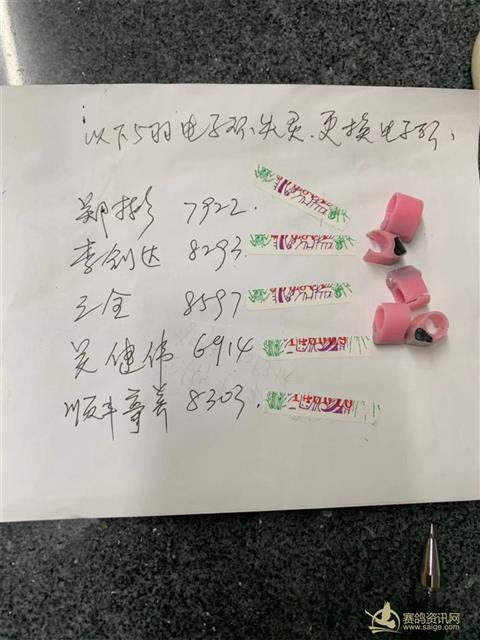 以下5羽电子环失灵.更换电子环.
郑 7922.
李创达 8293.
王全 8597
吴健伟 6914
顺丰 8303.
赛鸽资讯网
www.saige.com